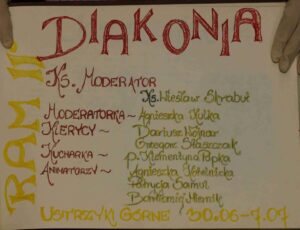 DIAKONIA
RAM III°
KS. MODERATOR
Ks. Wiesław Skrabut
MODERATORKA ~ Agnieszka Kulka
KLERYCY ~ Dariusz Wojnar
Grzegorz Staszczak
KUCHARKA ~ p. Klementyna Popka
ANIMATORZY ~ Agnieszka Kotelnicka
Patrycja Samul
Bartłomiej Miernik
USTRZYKI GÓRNE 30.06-7.07